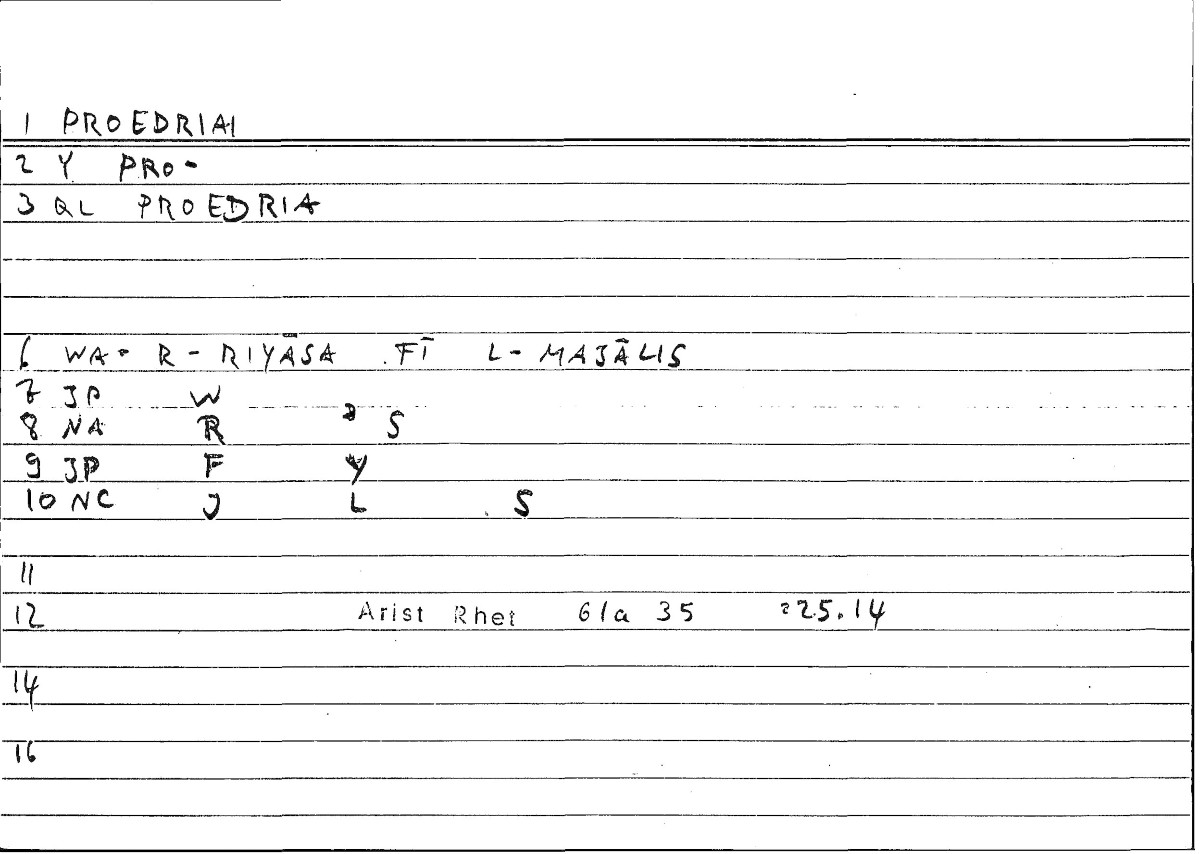 1 PROEDRIAI
2 Y PRO-
3 QL PROEDRIA
6 WA- R-RIYĀSA FĪ L-MAJĀLIS
7 JP W
8 NA R ʾ S
9 JP F Y
10 NC J L S
11
12 Arist Rhet 61a 35 225.14
14
16